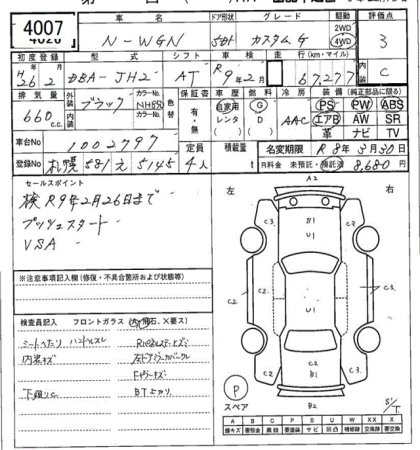 4007
車名
ドア形状
グレード
駆動
評価点
N-WGN
5D
カスタムG
2WD
4WD
3
初度登録
型式
シフト
車検
走行(km・マイル)
内装
H26年2月
DBA-JH2
AT
R9年2月
67,277
C
排気量
外装
ブラック
カラーNo.
NH850
色替
保証書
有・無
車歴
自家用
レンタ
燃料
G
D
冷房
AAC
装備(純正部品に限る)
PS PW ABS
エアB AW SR
革 ナビ TV
660 c.c.
車台No
1002797
定員
積載量
名変期限
R8年3月30日
登録No
札幌 581 え 5145
4人
t
R料金 未預託・預託済
8,680円
セールスポイント
検 R9年2月26日まで
プッシュスタート
VSA
※注意事項記入欄(修復・不具合箇所および改造等)
検査員記入
フロントガラス
シートへたり ハンドルスレ
内装キズ
下廻りC
左
右
A2
C3
B1
U1
C3
C2
C2
U1
C2
C2
C3
C2
C2
B1
C3
B2
P
スペア
S/T
A B C P S U W X XX
線キズ 要鈑金 腐食 要塗装 サビ 凹凸 補修跡 交換跡 要交換